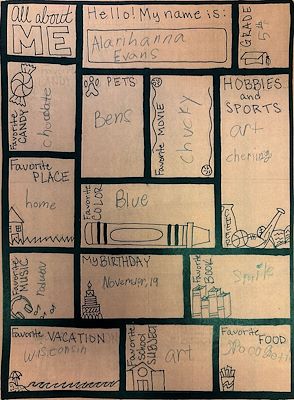 All about
ME
Hello! My name is:
Alarihanna
Evans
GRADE
5th
Favorite
CANDY
chocolate
PETS
Bens
Favorite MOVIE
chucky
HOBBIES
and
SPORTS
art
Favorite
PLACE
home
Favorite
COLOR
Blue
Favorite
MUSIC
MY BIRTHDAY
19
Favorite
BOOK
Smile
Favorite VACATION
Wisconsin
Favorite
SCHOOL
SUBJECT
art
Favorite
FOOD